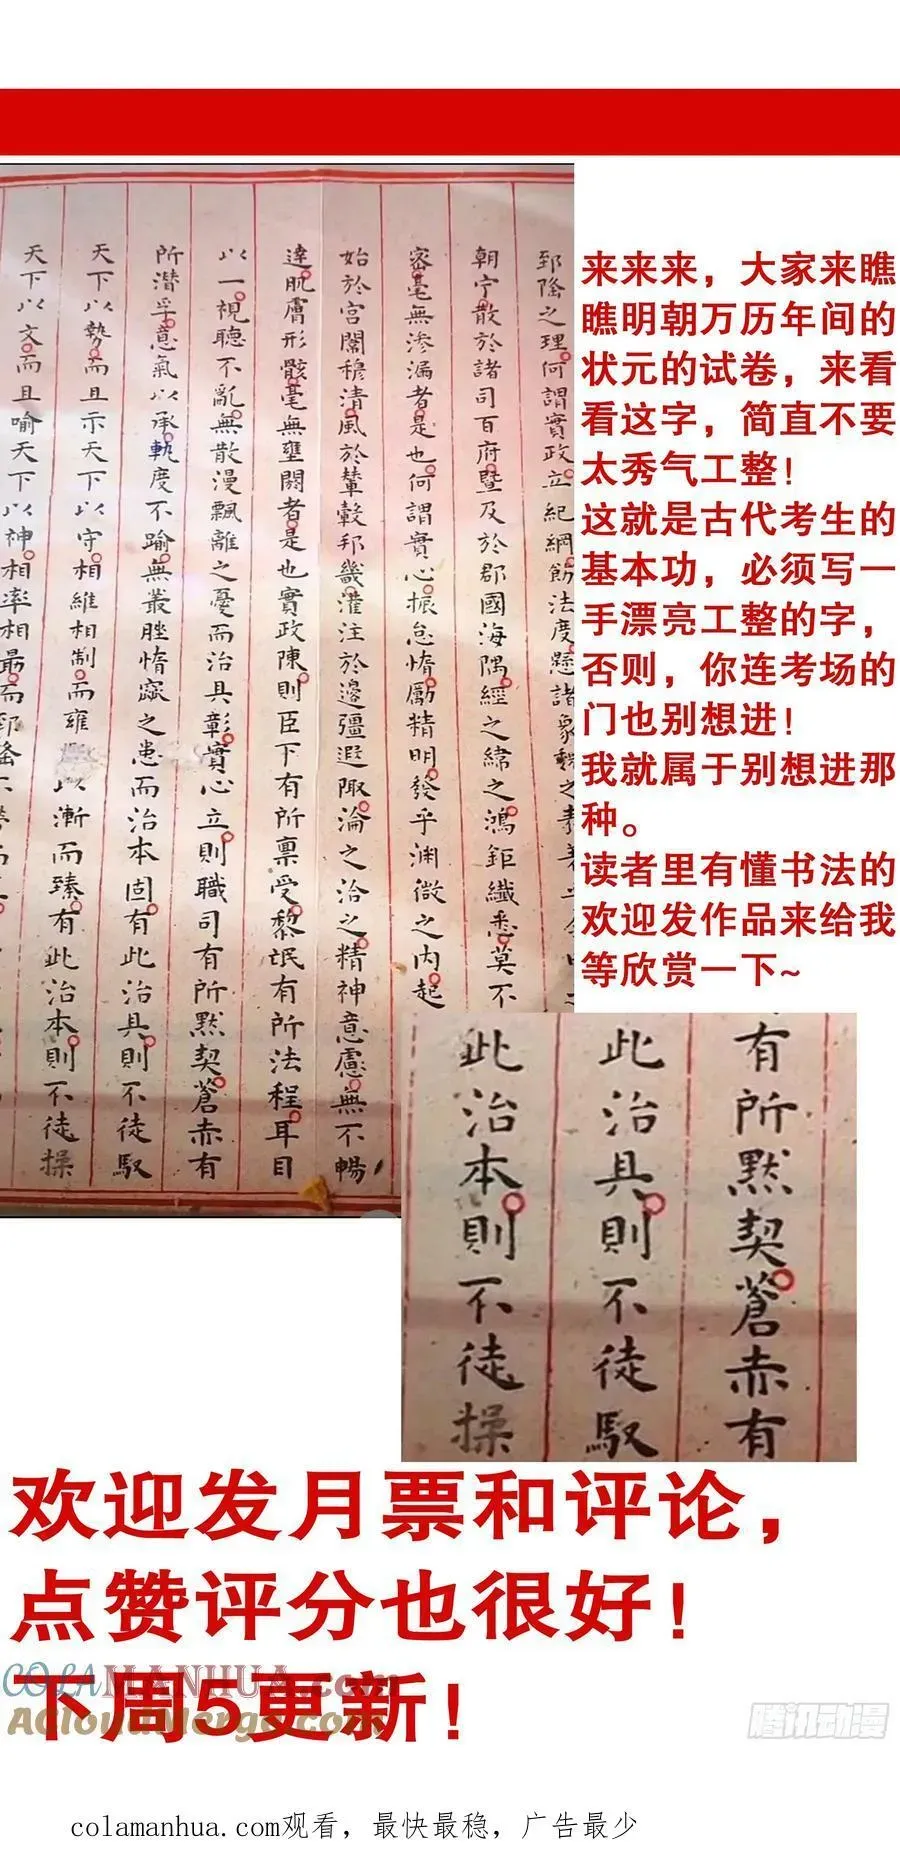 郅隆之理何謂實政立紀綱飭法度懸諸象魏之
朝宁散於諸司百府暨及於郡國海隅經之緯之鴻鉅纖悉莫不
密毫無滲漏者是也何謂實心振怠惰勵精明發乎淵微之内起
始於宮闈穆清風於輦轂邦畿灌注於邊疆遐陬淪之洽之精神意慮無不暢
達肌膚形骸毫無壅閼者是也實政陳則臣下有所禀受黎氓有所法程耳目
以一視聽不亂無散漫飄離之憂而治具彰實心立則職司有所黙契蒼赤有
所潛孚意氣以承軌度不踰無叢脞惰窳之患而治本固有此治具則不徒馭
天下以勢而且示天下以守相維相制而雍 以漸而臻有此治本則不徒操
天下以文而且喻天下以神相率相勗而郅隆
来来来，大家来瞧
瞧明朝万历年间的
状元的试卷，来看
看这字，简直不要
太秀气工整！
这就是古代考生的
基本功，必须写一
手漂亮工整的字，
否则，你连考场的
门也别想进！
我就属于别想进那
种。
读者里有懂书法的
欢迎发作品来给我
等欣赏一下~
有所黙契蒼赤有
此治具則不徒馭
此治本則不徒操
欢迎发月票和评论，
点赞评分也很好！
下周5更新！
COLAMANHUA.com
ACloudMerge.com
腾讯动漫
colamanhua.com观看，最快最稳，广告最少